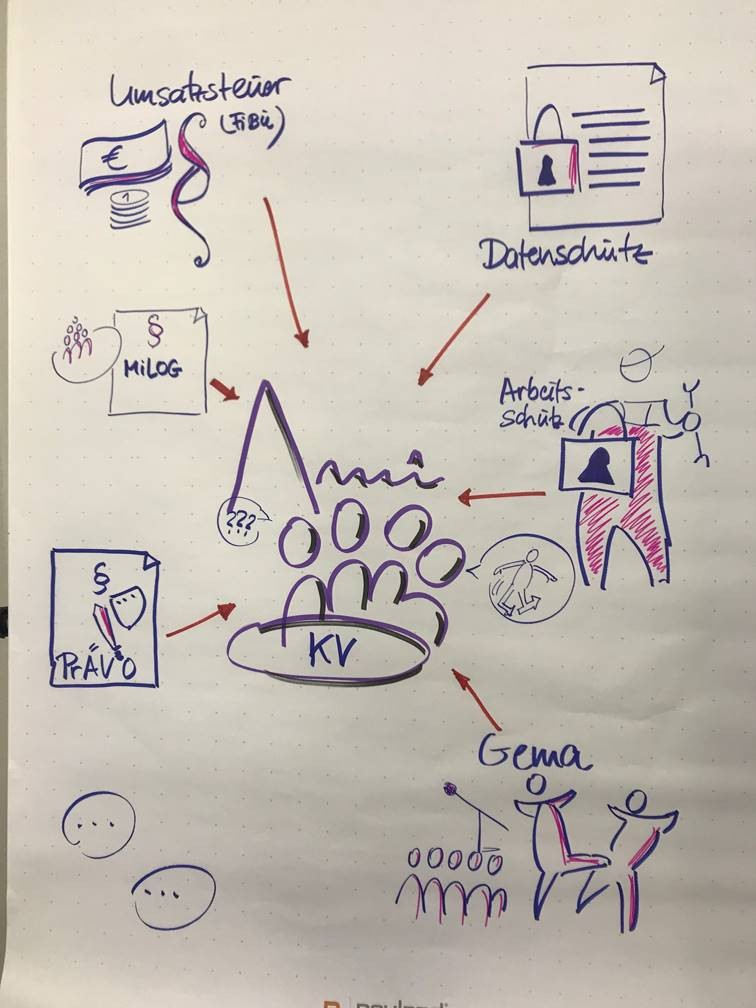 Umsatzsteuer
(FiBu)
€
1
§
Datenschutz
§
MiLOG
Arbeits-
schutz
???
§
PrÄVO
KV
Gema
...
...